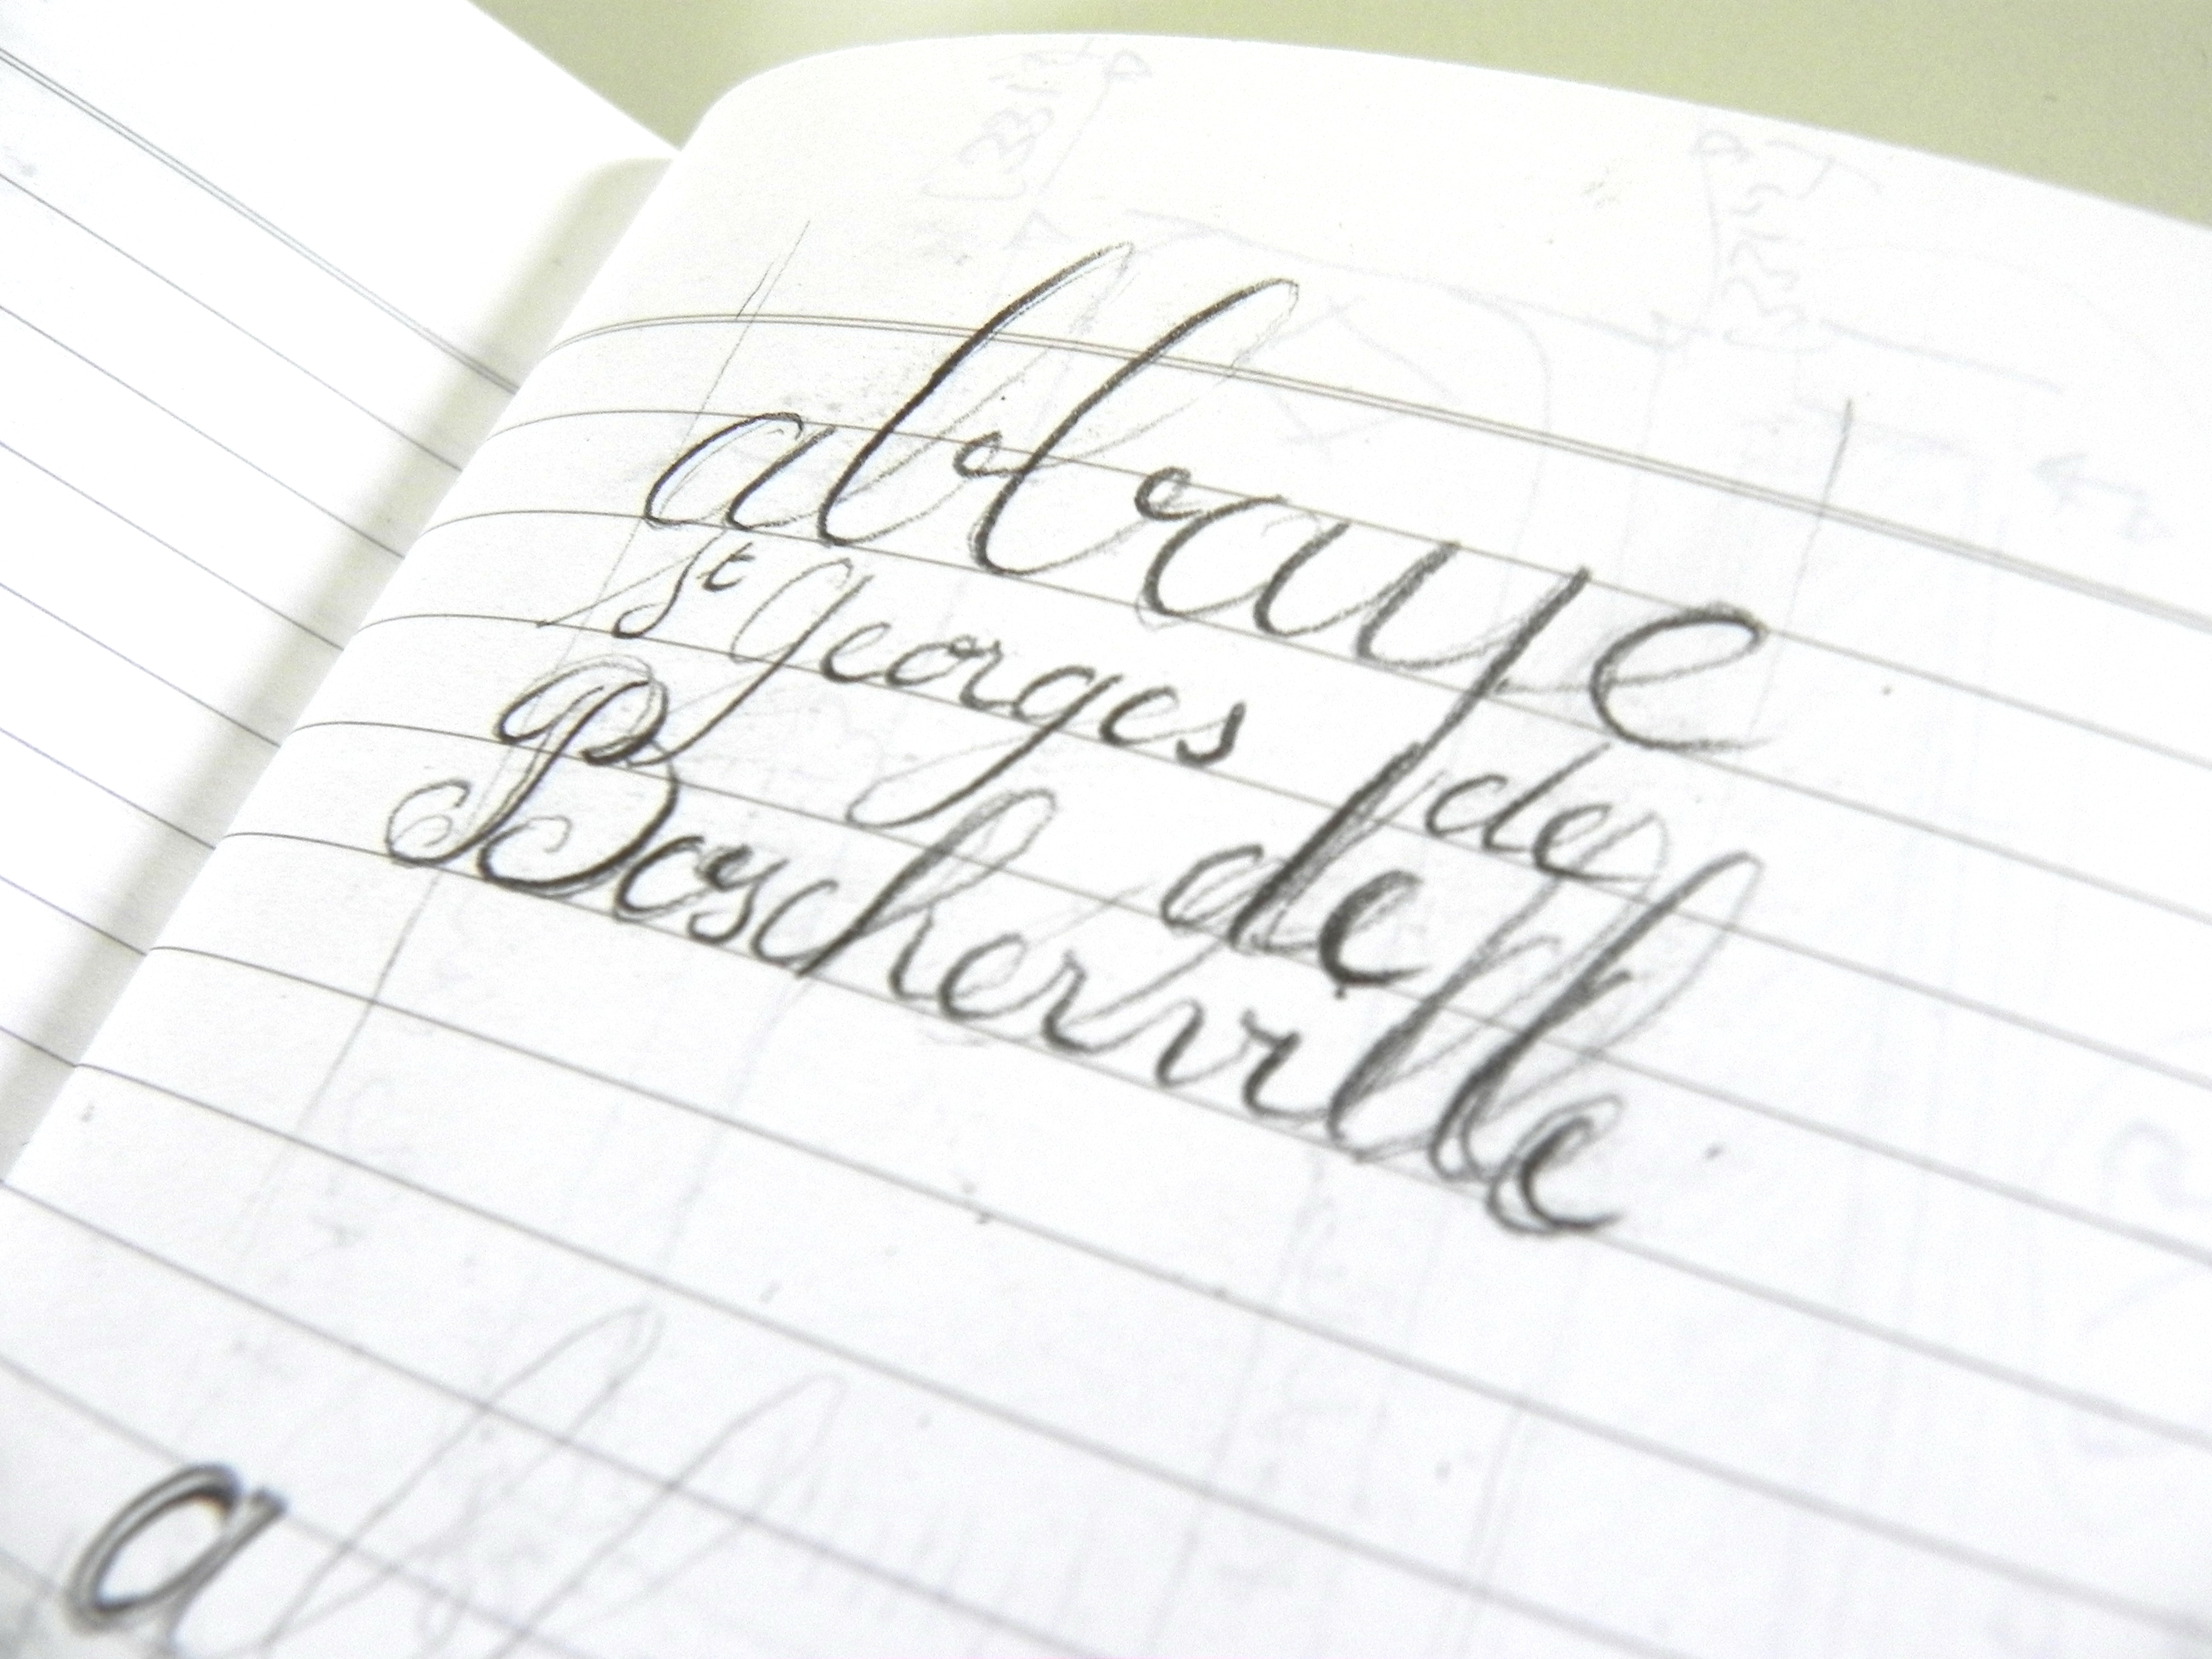 abbaye
St Georges de
de
Boscherville
a